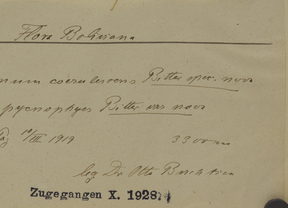 Flora Boliviana
num coerulescens Bitter spec. nov.
pycnophyes Bitter var. nov.
1919 3300 m
leg Dr Otto Buchtien
Zugegangen X. 1928.